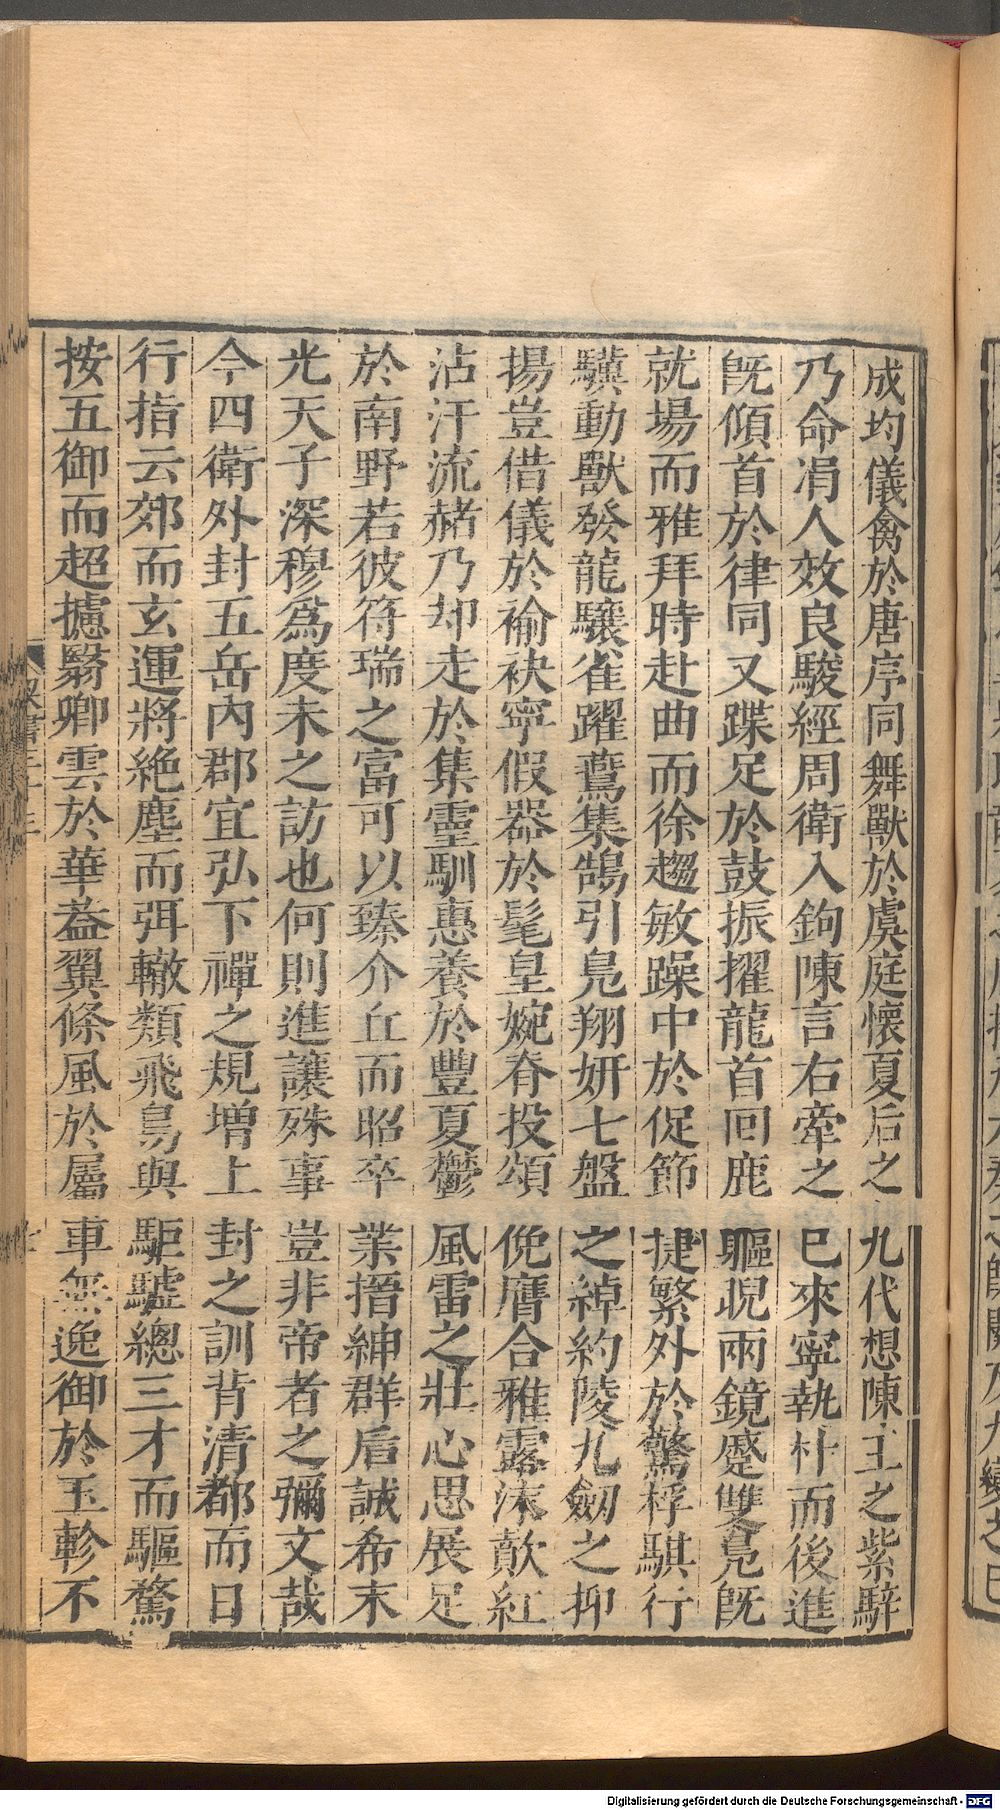 成均儀禽於唐序同舞獸於虞庭懷夏后之九代想陳王之紫騂
乃命涓人效良駿經周衛入鉤陳言右牽之已來寧執朴而後進
既傾首於律同又蹀足於鼓振擢龍首回鹿軀睨兩鏡蹙雙鳧既
就場而雅拜時赴曲而徐趨敏躁中於促節捷繁外於驚桴騏行
驥動獸發龍驤雀躍鷰集鵠引鳧翔妍七盤之綽約陵九劒之抑
揚豈借儀於褕袂寧假器於髦皇婉脊投頌俛膺合雅露沫歕紅
沾汗流赭乃却走於集靈馴惠養於豐夏鬱風雷之壯心思展足
於南野若彼符瑞之富可以臻介丘而昭卒業搢紳群后誠希末
光天子深穆爲度未之訪也何則進讓殊事豈非帝者之彌文哉
今四衛外封五岳內郡宜弘下禪之規增上封之訓背清都而日
行指云郊而玄運將絶塵而弭轍類飛鳥與駏驢總三才而驅騖
按五御而超攄翳卿雲於華葢翼條風於屬車無逸御於玉軫不
Digitalisierung gefördert durch die Deutsche Forschungsgemeinschaft - DFG